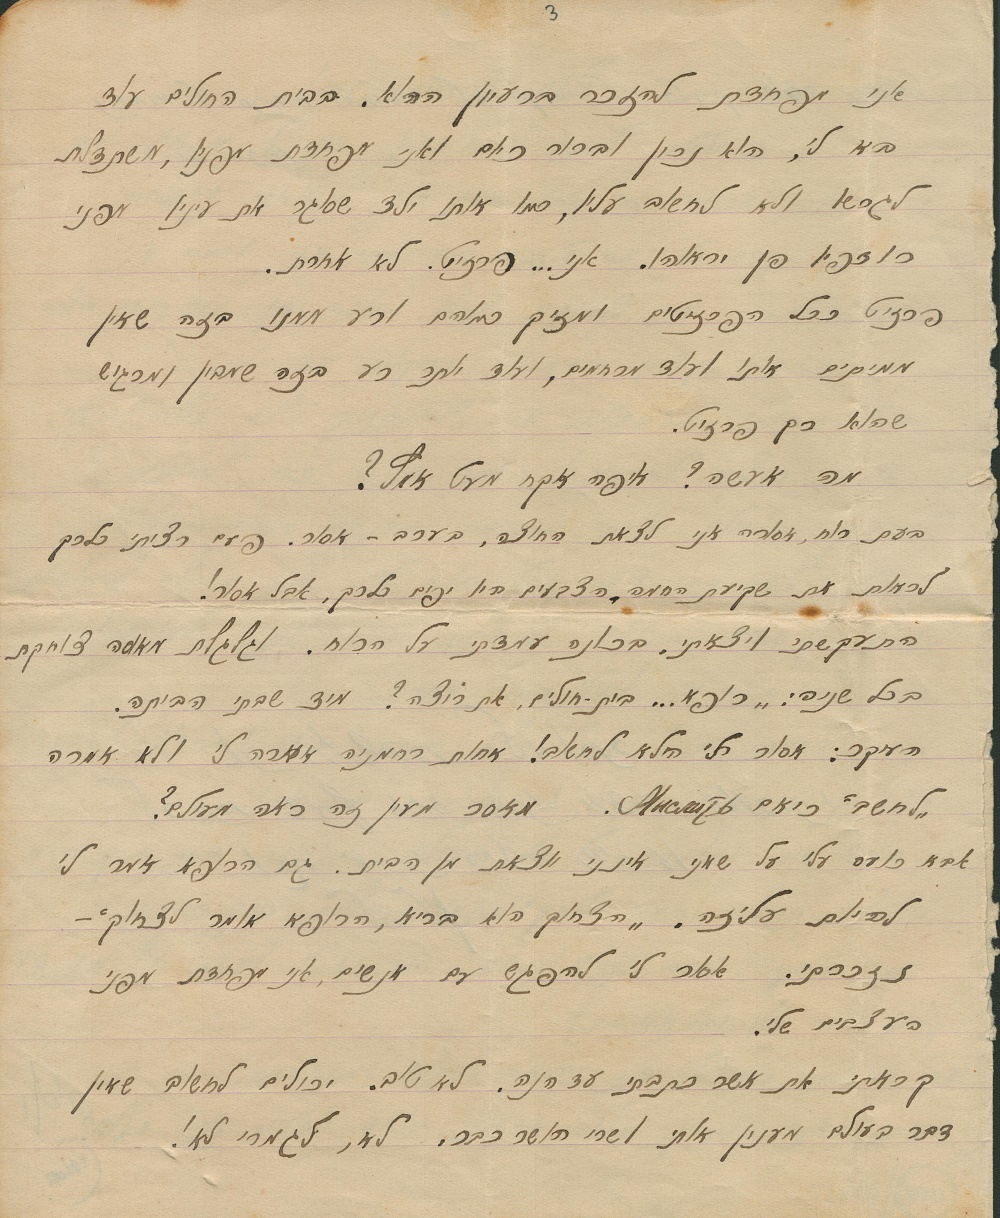 3
אני מפחדת להזכר ברעיון ההוא. בבית החולים עוד
בא לי, הוא נכון וברור כיום ואני מפחדת מפניו, משתדלת
לגרשו ולא לחשוב עליו, כמו אותו ילד שסוגר את עיניו מפני
רודפיו פן יראוהו. אני... פרזיט. לא אחרת.
פרזיט ככל הפרזיטים ומזיק כמוהם ורע ממנו בזה שאין
ממיתים אותו ועוד מרחמים, ועוד יותר רע בזה שמבין ומרגיש
שהוא רק פרזיט.
מה אעשה? איפה אקח מעט אור?
בעת רוח אסורה אני לצאת החוצה, בערב – אסור. פעם רציתי כל כך
לראות את שקיעת החמה, הצבעים היו יפים כל כך, אבל אסור!
התעקשתי ויצאתי. בכוונה עמדתי על הרוח. וגלגלת צוחקת
בכל שניה: „רופא... בית-חולים, את רוצה? מיד שבתי הביתה.
העקר: אסור לי לחשוב! אחות רחמניה אמרה לי ולא אמרה
„לחשב" כיאם. מאסר מעין זה ראה מעולם?
אבא כועס עלי על שאני אינני יוצאת מן הבית. גם הרופא אמר לי
להיות עליזה. „הצחוק הוא בריא, הרופא אומר לצחוק" –
נזכרתי. אסור לי להפגש עם אנשים, אני מפחדת מפני
העצבים שלי.
קראתי את אשר כתבתי עד הנה. לא טוב. יכולים לחשוב שאין
דבר בעולם מענין אותי ושרי הושר כבר. לא, לגמרי לא!